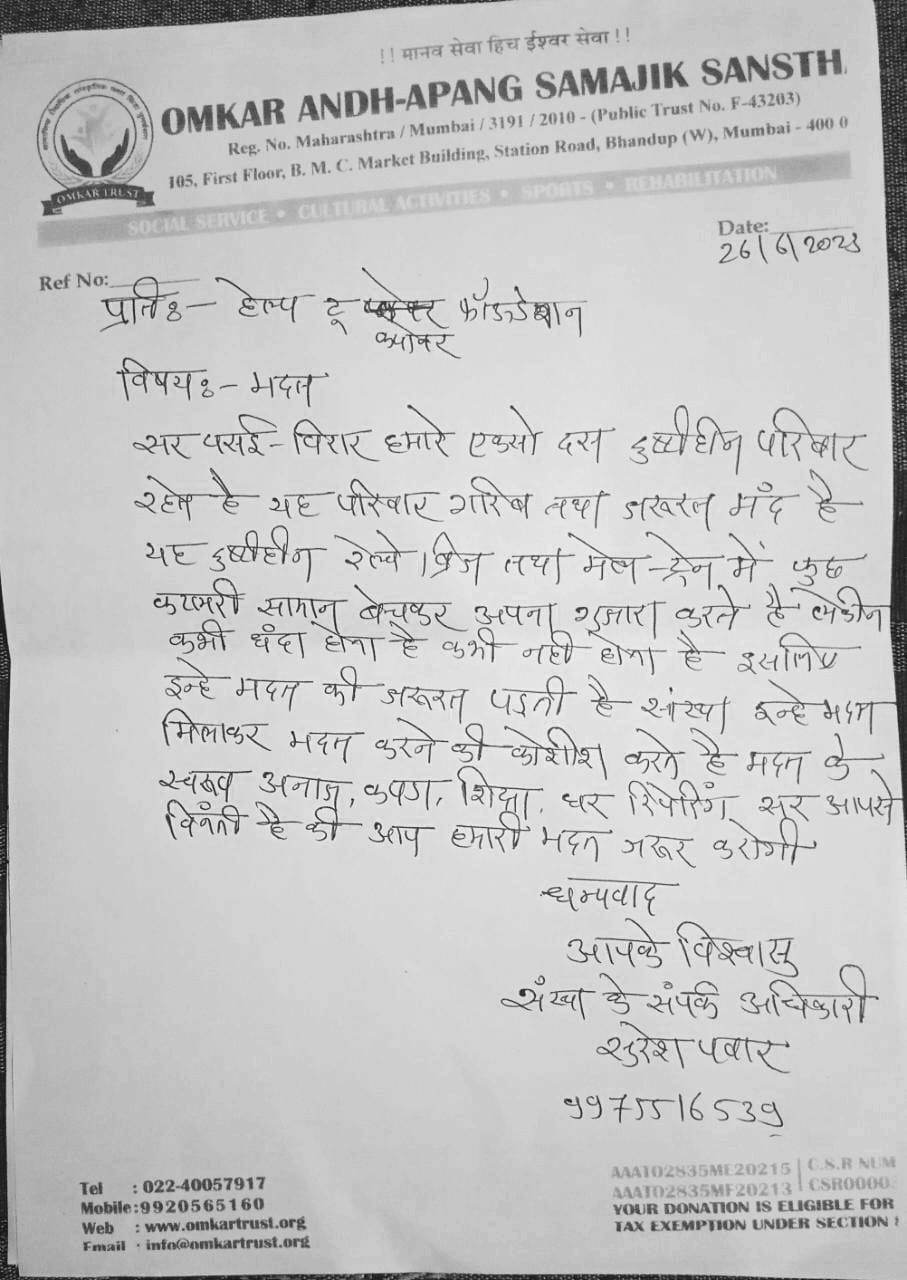 !! मानव सेवा हिच ईश्वर सेवा !!
OMKAR ANDH-APANG SAMAJIK SANSTHA
Reg. No. Maharashtra / Mumbai / 3191 / 2010 - (Public Trust No. F-43203)
105, First Floor, B. M. C. Market Building, Station Road, Bhandup (W), Mumbai - 400 0
OMKAR TRUST
SOCIAL SERVICE • CULTURAL ACTIVITIES • SPORTS • REHABILITATION
Date:
26/6/2023
Ref No:
प्रतिः- हेल्प टू फॉऊंडेशान
विषयः- मदत
सर वसई-विरार हमारे एकसो दस दुष्टीहीन परिवार
रहेते है यह परिवार गरिब तथा जरूरत मंद है
यह दुष्टीहीन रेल्वे ब्रिज तथा मेल-ट्रेन में कुछ
कटलरी सामान बेचकर अपना गुजारा करते है लेकीन
कभी धंदा होता है कभी नही होता है इसलिए
इन्हे मदत की जरूरत पडती है संस्था इन्हे मदत
मिलाकर मदत करने की कोशीश करते है मदत के
स्वरूव अनाज, कपडा, शिक्षा, घर रिपेरिंग, सर आपसे
विनंती है की आप हमारी मदत जरूर करोगी
धन्यवाद
आपके विश्वासु
संस्था के संपर्क अधिकारी
सुरेश पवार
9975516539
Tel : 022-40057917
Mobile:9920565160
Web : www.omkartrust.org
Email : info@omkartrust.org
AAATO2835ME20215 | C.S.R NUM
AAATO2835MF20213 | CSR0000
YOUR DONATION IS ELIGIBLE FOR
TAX EXEMPTION UNDER SECTION